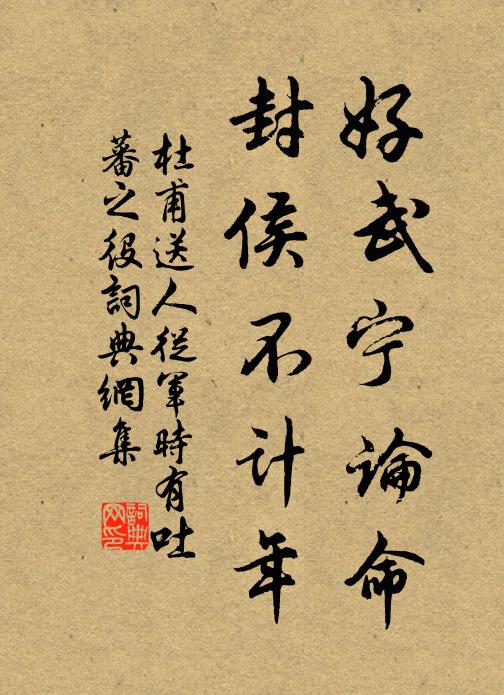 好武宁論命
封侯不计年
杜甫送人從軍時有吐
蕃之役詞典網集
詞典
网印